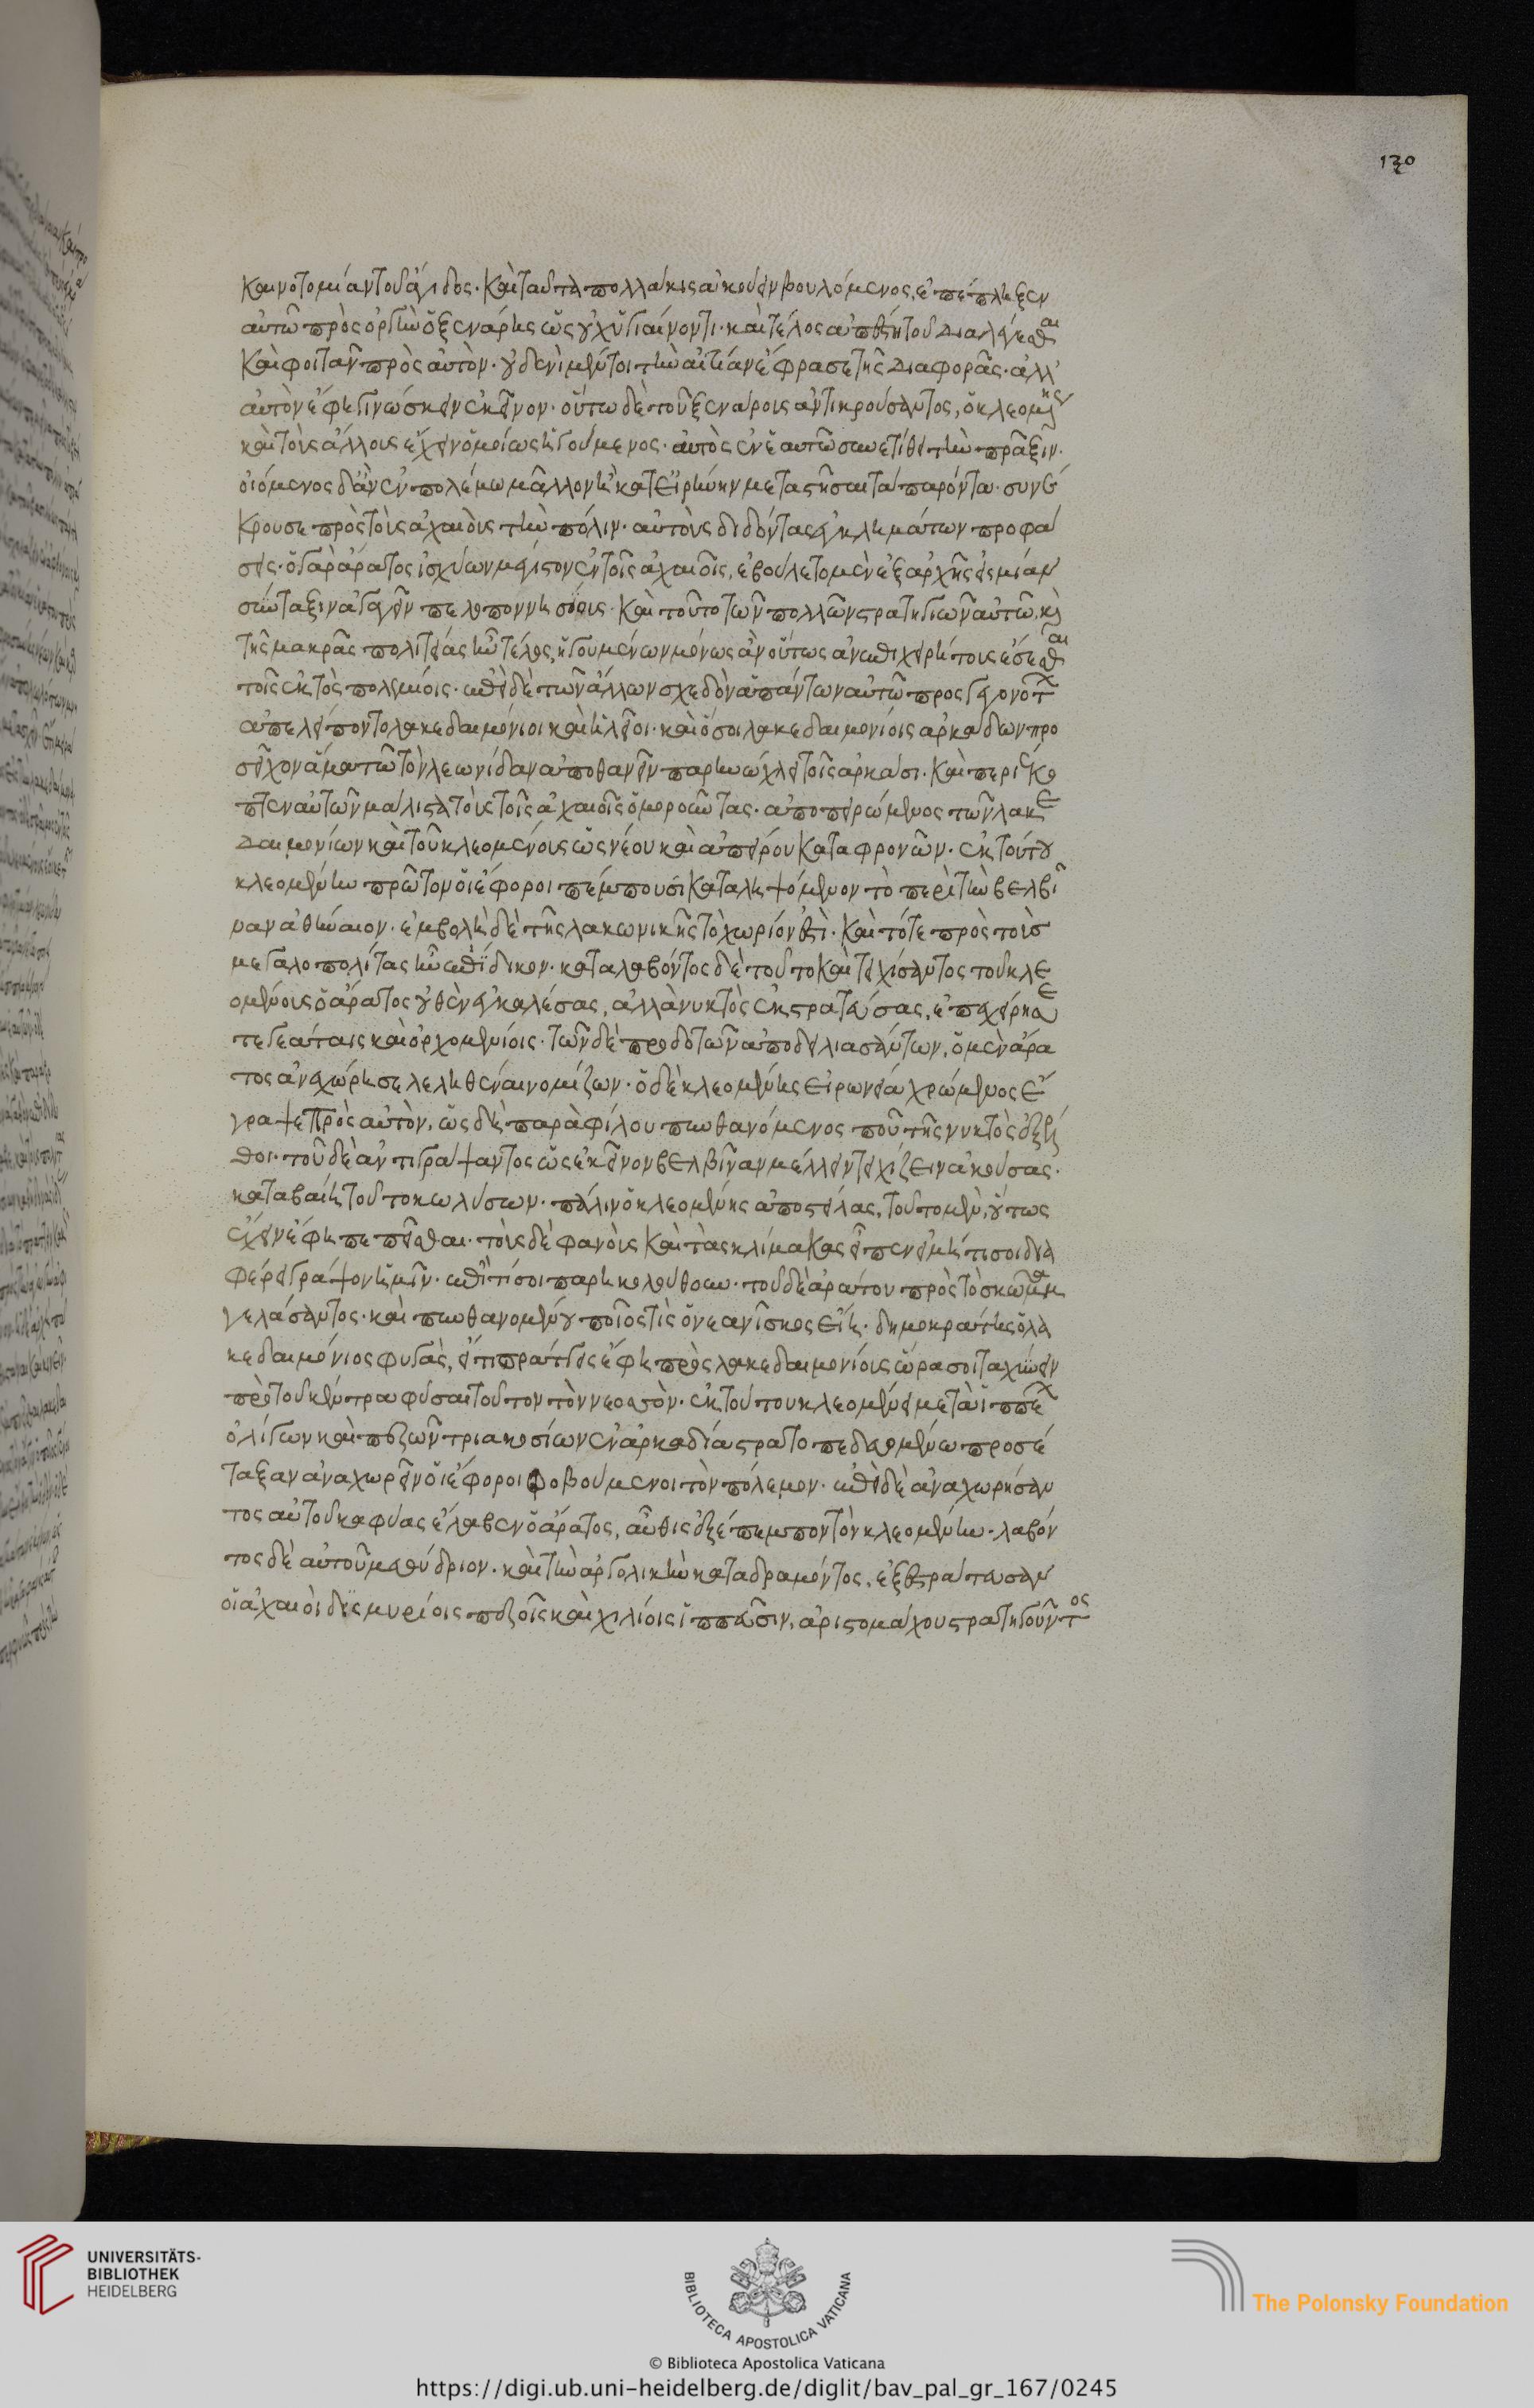 καινοτομίαν τοῦ ἄγιδος· καὶ ταῦτα πολλάκις ἀκούειν βουλόμενος, ἐπέπληξεν
αὐτῶ πρὸς ὀργὴν ὁ ξενάρης ὡς οὐχ ὑγιαίνοντι· καὶ τέλος ἀπέστη τοῦ διαλέγεσθαι
καὶ φοιτᾶν πρὸς αὐτὸν· οὐδενὶ μέντοι τὴν αἰτίαν ἔφρασε τῆς διαφορᾶς· ἀλλ'
αὐτὸν ἔφη γινώσκειν ἐκεῖνον· οὕτω δὲ τοῦ ξενάρους ἀντικρούσαντος, ὁ κλεομένης
καὶ τοὺς ἄλλους ἔχειν ὁμοίως ἡγούμενος· αὐτὸς ἐν ἑαυτῶ συνετίθει τὴν πρᾶξιν·
οἰόμενος δ' ἂν ἐν πολέμω μᾶλλον ἢ κατ' εἰρήνην μεταστῆσαι τὰ παρόντα· συνέ
κρουσε πρὸς τοὺς ἀχαιοὺς τὴν πόλιν· αὐτοὺς διδόντας ἐγκλημάτων προφά
σεις· ὁ γὰρ ἄρατος ἰσχύων μέγιστον ἐν τοῖς ἀχαιοῖς, ἐβούλετο μὲν ἐξ ἀρχῆς εἰς μίαν
σύνταξιν ἀγαγεῖν πελοποννησίους· καὶ τοῦτο τῶν πολλῶν στρατηγιῶν αὐτῶ, καὶ
τῆς μακρᾶς πολιτείας ἦν τέλος, ἡγουμένω μόνως ἂν οὕτως ἀνεπιχειρήτους ἔσεσθαι
τοῖς ἐκτὸς πολεμίοις· ἐπεὶ δὲ τῶν ἄλλων σχεδὸν ἁπάντων αὐτῶ προσγεγονότων
ἀπελείποντο λακεδαιμόνιοι καὶ ἠλεῖοι· καὶ ὅσοι λακεδαιμονίοις ἀρκάδων προ
σεῖχον ἅμα τῶ τὸν λεωνίδαν ἀποθανεῖν παρηνώχλει τοῖς ἀρκάσι· καὶ περιέκο
πτεν αὐτῶν μάλιστα τοὺς τοῖς ἀχαιοῖς ὁμοροῦντας· ἀποπειρώμενος τῶν λακε
δαιμονίων καὶ τοῦ κλεομένους ὡς νέου καὶ ἀπείρου καταφρονῶν· ἐκ τούτου
κλεομένην πρῶτον οἱ ἔφοροι πέμπουσι καταληψόμενον τὸ περὶ τὴν βελβι
ναν ἀθήναιον· ἐμβολὴ δὲ τῆς λακωνικῆς τὸ χωρίον ἐστὶ· καὶ τότε πρὸς τοὺς
μεγαλοπολίτας ἦν ἐπίδικον· καταλαβόντος δὲ τοῦτο καὶ τειχίσαντος τοῦ κλε
ομένους ὁ ἄρατος οὐθὲν ἐγκαλέσας, ἀλλὰ νυκτὸς ἐκστρατεύσας, ἐπεχείρησε
τεγεάταις καὶ ὀρχομενίοις· τῶν δὲ προδοτῶν ἀποδειλιασάντων, ὁ μὲν ἄρα
τος ἀνεχώρησε λεληθέναι νομίζων· ὁ δὲ κλεομένης εἰρωνεία χρώμενος ἔ
γραψε πρὸς αὐτὸν, ὡς δὴ παρὰ φίλου πυνθανόμενος ποῦ τῆς νυκτὸς ἐξέλ
θοι· τοῦ δὲ ἀντιγράψαντος ὡς ἐκεῖνον βελβῖναν μέλλειν τειχίζειν ἀκούσας·
καταβαίη τοῦτο κωλύσων· πάλιν ὁ κλεομένης ἀποστείλας, τοῦτο μὲν, οὕτως
ἔχειν ἔφη πεπεῖσθαι· τοὺς δὲ φανοὺς καὶ τὰς κλίμακας εἶπεν εἰ μή τι σοι δια
φέρει γράψον ἡμῖν· ἐπὶ τί σοι παρηκολούθουν· τοῦ δὲ ἀράτου πρὸς τὸ σκῶμμα
γελάσαντος· καὶ πυνθανομένου ποῖός τις ὁ νεανίσκος εἴη· δημοκράτης ὁ λα
κεδαιμόνιος φυγὰς, εἴ τι πράττεις ἔφη πρὸς λακεδαιμονίους ὥρα σοι ταχύνειν
πρὸ τοῦ κέντρα φύσαι τοῦτον τὸν νεοσσὸν· ἐκ τούτου κλεομένει μετὰ ἱππέων
ὀλίγων καὶ πεζῶν τριακοσίων ἐν ἀρκαδία στρατοπεδευομένω προσέ
ταξαν ἀναχωρεῖν οἱ ἔφοροι φοβούμενοι τὸν πόλεμον· ἐπεὶ δὲ ἀναχωρήσαν
τος αὐτοῦ καφύας ἔλαβεν ὁ ἄρατος, αὖθις ἐξέπεμπον τὸν κλεομένην· λαβόν
τος δὲ αὐτοῦ μεθύδριον· καὶ τὴν ἀργολικὴν καταδραμόντος, ἐξεστράτευσαν
οἱ ἀχαιοὶ δισμυρίοις πεζοῖς καὶ χιλίοις ἱππεῦσιν, ἀριστομάχου στρατηγοῦντος
130
UNIVERSITÄTS-
BIBLIOTHEK
HEIDELBERG
BIBLIOTECA APOSTOLICA VATICANA
The Polonsky Foundation
© Biblioteca Apostolica Vaticana
https://digi.ub.uni-heidelberg.de/diglit/bav_pal_gr_167/0245